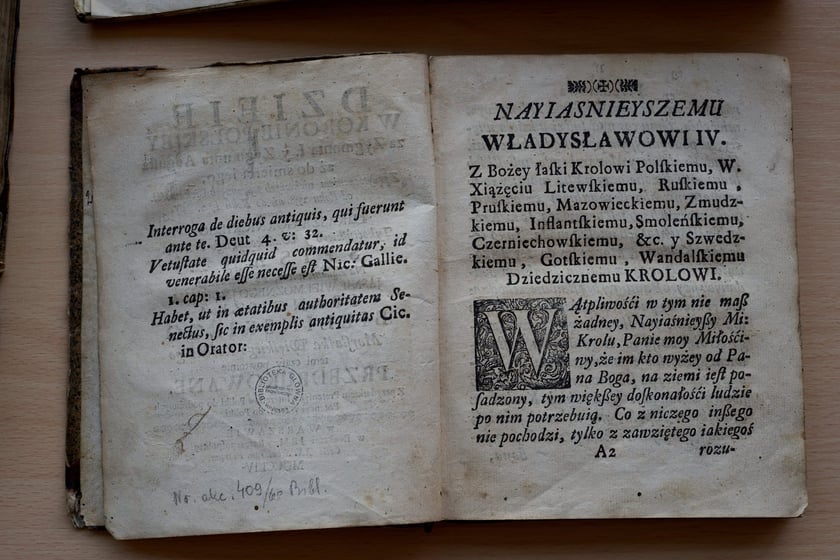 Interroga de diebus antiquis, qui fuerunt
ante te. Deut 4. v: 32.
Vetuſtate quidquid commendatur, id
venerabile eſſe neceſſe eſt Nic: Gallie.
1. cap: 1.
Habet, ut in ætatibus authoritatem Se-
nectus, ſic in exemplis antiquitas Cic.
in Orator:
BIBLIOTEKA GŁÓWNA
Nr. akc. 409/60 Bibl.
NAYIASNIEYSZEMU
WŁADYSŁAWOWI IV.
Z Bożey łaſki Krolowi Polſkiemu, W.
Xiążęciu Litewſkiemu, Ruſkiemu,
Pruſkiemu, Mazowieckiemu, Zmudz-
kiemu, Inflantſkiemu, Smoleńſkiemu,
Czerniechowſkiemu, &c. y Szwedz-
kiemu, Gotſkiemu, Wandalſkiemu
Dziedzicznemu KROLOWI.
WĄtpliwośći w tym nie maß
żadney, Nayiaśnieyßy Mi:
Krolu, Panie moy Miłośći-
wy, że im kto wyżey od Pa-
na Boga, na ziemi ieſt po-
ſadzony, tym więkßey doſkonałośći ludzie
po nim potrzebuią. Co z niczego inßego
nie pochodzi, tylko z zawziętego iakiegoś
A2 rozu-